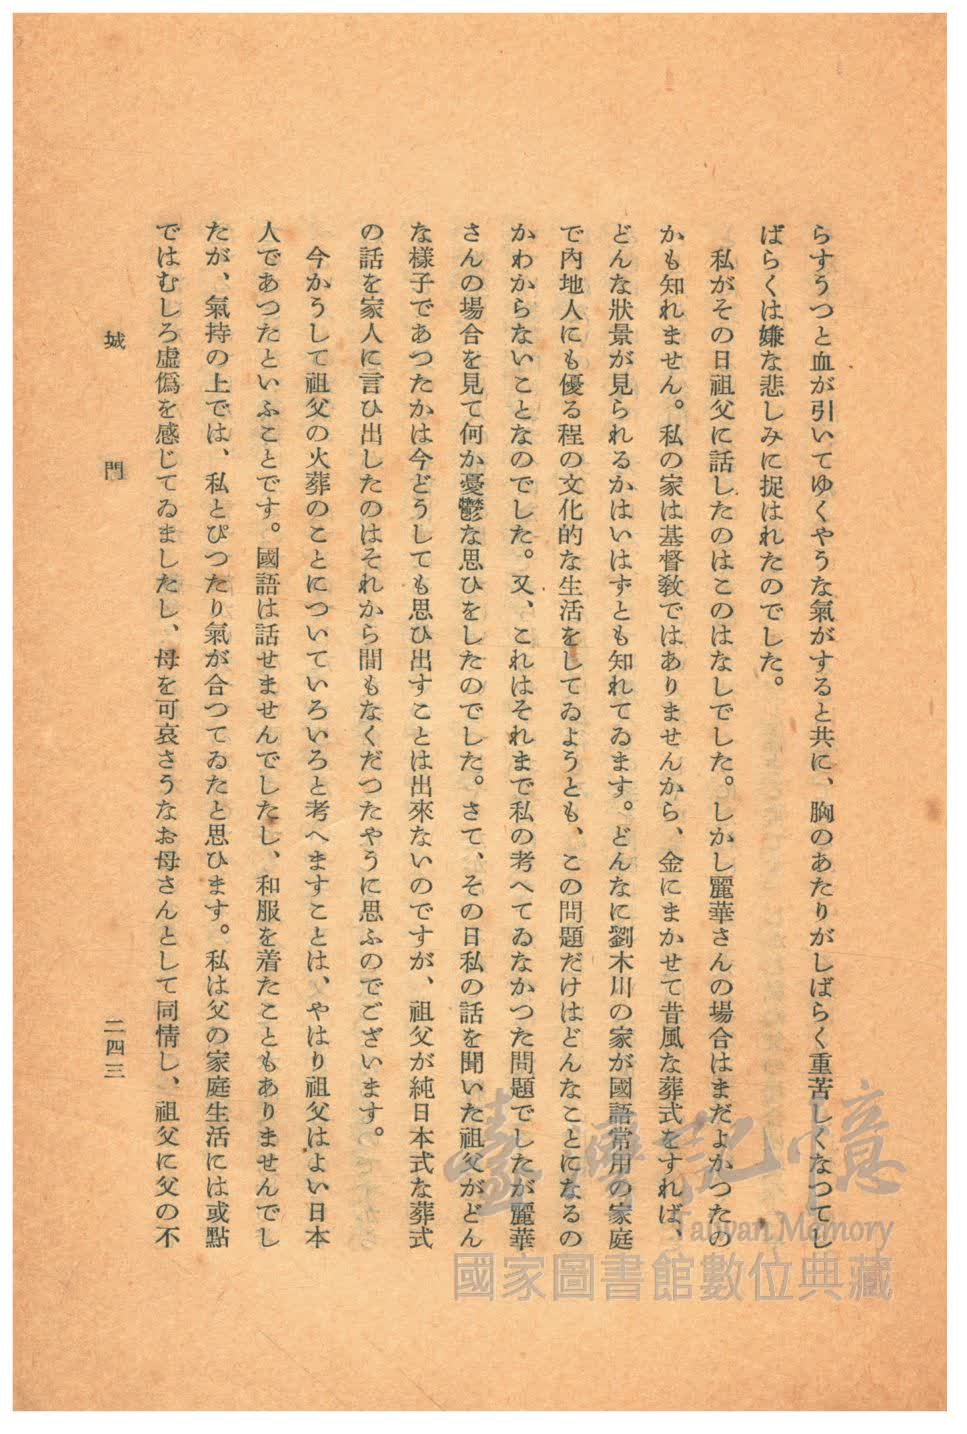 らすうつと血が引いてゆくやうな氣がすると共に、胸のあたりがしばらく重苦しくなつてし
ばらくは嫌な悲しみに捉はれたのでした。
私がその日祖父に話したのはこのはなしでした。しかし麗華さんの場合はまだよかつたの
かも知れません。私の家は基督敎ではありませんから、金にまかせて昔風な葬式をすれば、
どんな狀景が見られるかはいはずとも知れてゐます。どんなに劉木川の家が國語常用の家庭
で內地人にも優る程の文化的な生活をしてゐようとも、この問題だけはどんなことになるの
かわからないことなのでした。又、これはそれまで私の考へてゐなかつた問題でしたが麗華
さんの場合を見て何か憂鬱な思ひをしたのでした。さて、その日私の話を聞いた祖父がどん
な樣子であつたかは今どうしても思ひ出すことは出來ないのですが、祖父が純日本式な葬式
の話を家人に言ひ出したのはそれから間もなくだつたやうに思ふのでございます。
今かうして祖父の火葬のことについていろいろと考へますことは、やはり祖父はよい日本
人であつたといふことです。國語は話せませんでしたし、和服を着たこともありませんでし
たが、氣持の上では、私とぴつたり氣が合つてゐたと思ひます。私は父の家庭生活には或點
ではむしろ虛僞を感じてゐましたし、母を可哀さうなお母さんとして同情し、祖父に父の不
城門
二四三
臺灣記憶
Taiwan Memory
國家圖書館數位典藏